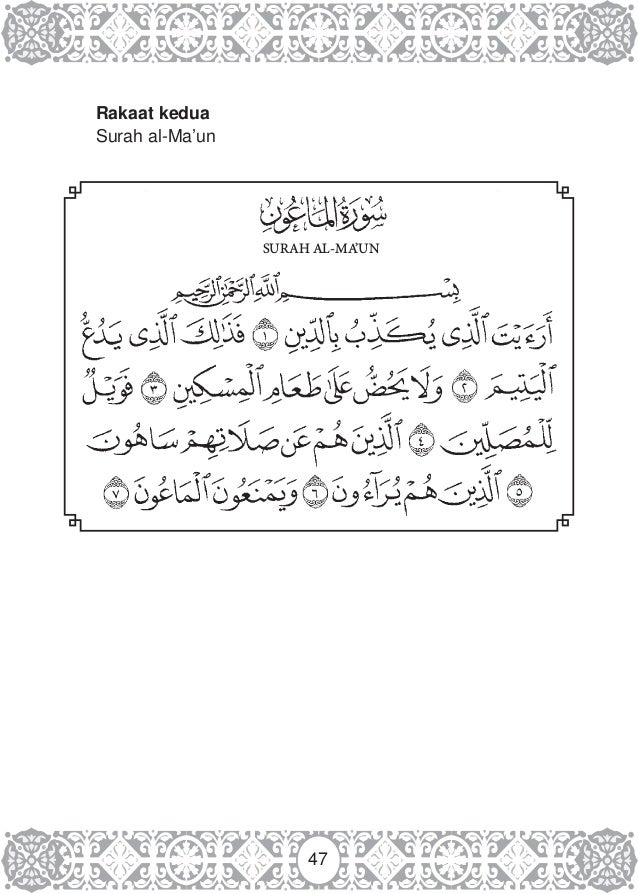 Rakaat kedua
Surah al-Ma’un
سُورَةُ المَاعُونِ
SURAH AL-MA’UN
بِسْمِ ٱللَّهِ ٱلرَّحْمَٰنِ ٱلرَّحِيمِ
أَرَءَيْتَ ٱلَّذِى يُكَذِّبُ بِٱلدِّينِ ١ فَذَٰلِكَ ٱلَّذِى يَدُعُّ
ٱلْيَتِيمَ ٢ وَلَا يَحُضُّ عَلَىٰ طَعَامِ ٱلْمِسْكِينِ ٣ فَوَيْلٌ
لِّلْمُصَلِّينَ ٤ ٱلَّذِينَ هُمْ عَن صَلَاتِهِمْ سَاهُونَ
٥ ٱلَّذِينَ هُمْ يُرَآءُونَ ٦ وَيَمْنَعُونَ ٱلْمَاعُونَ ٧
47